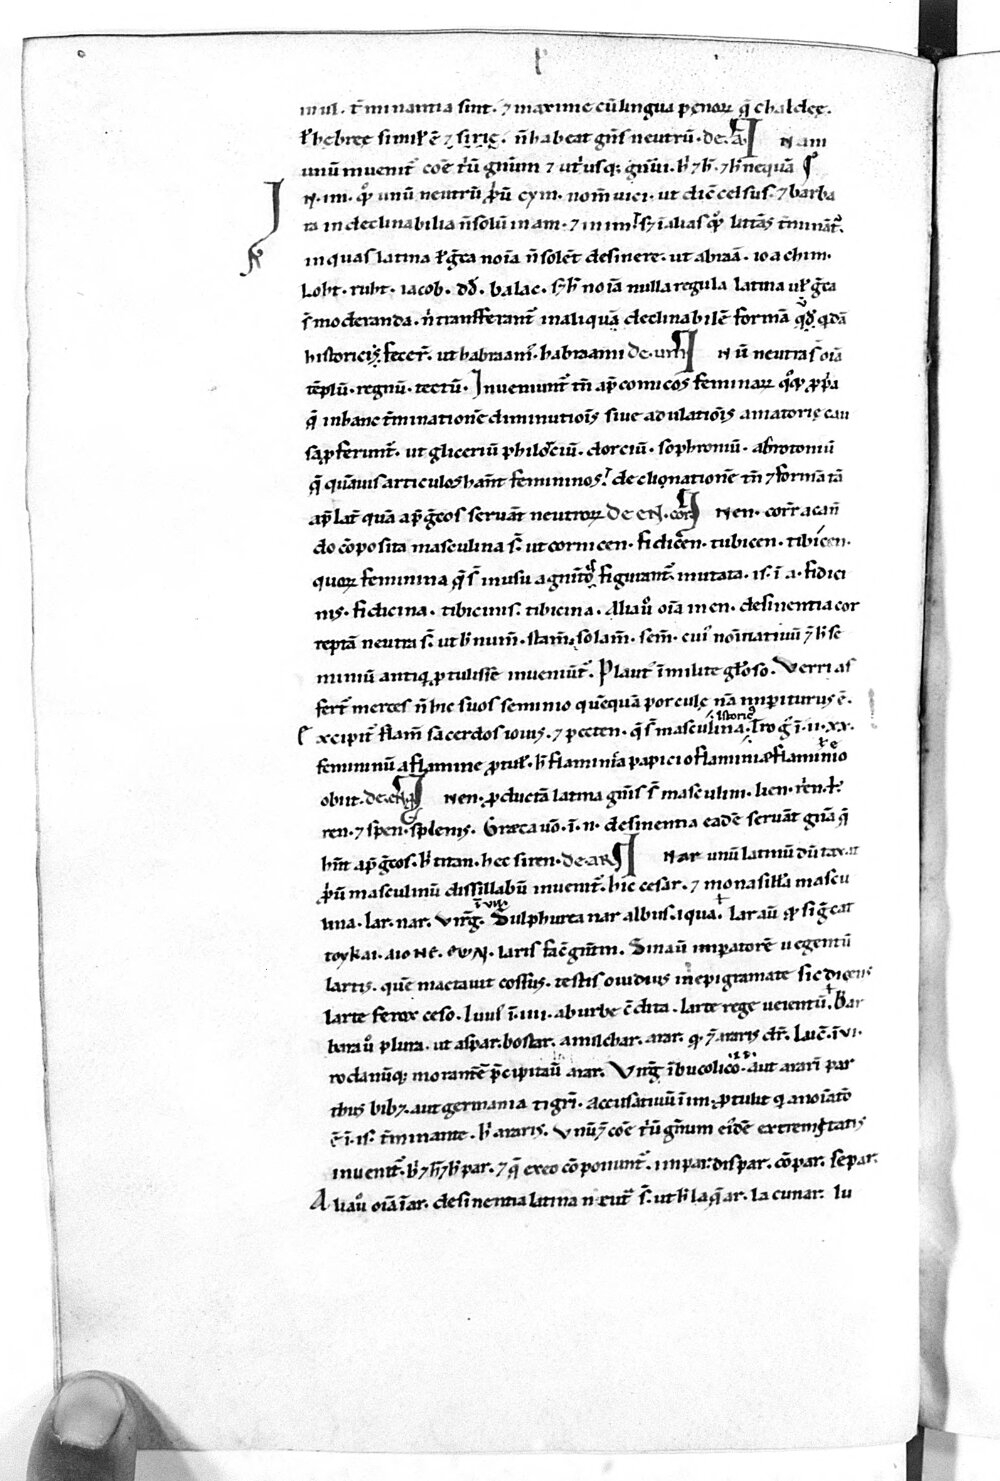 mul. t̄minantia sint. ⁊ maxime cū lingua penoꝝ q̄ chaldeę.
ł hebreę simił ē ⁊ sirię. n̄ habeat gn̄s neutrū. de. ā I Nam
unū inuenit̄ coē t̄ū gn̄um ⁊ ut̄usq; gn̄ui. h̄ ⁊ h̄. ⁊ h̄ nequā
N. im. unū neutrū cym. nom̄ uici. ut dic̄ celsus. ⁊ barba
ra indeclinabilia n̄ solū in am. ⁊ in im. s; ⁊ ī alias litt̄as t̄minānt̄.
in quas latina ł gr̄ca noīa n̄ solent desinere. ut abraā. ioachim.
Loht. ruht. iacob. dd̄. balac. s; h̄ noīa nulla regula latina uł gr̄ca
s̄ moderanda. n̄ transferant̄ in aliquā declinabilē formā qd̄ qdā
historici; fecer̄. ut habraam'. habraami de. um I N ū neutra s̄ oīa
tēplū. regnū. tectū. Inueniunt̄ tn̄ ap̄ comicos feminaꝝ qq; ppā
q̄ in hanc t̄minationē diminutiōis siue adulatiōis amatorię cau
sa pferunt̄. ut gliceriū philoc̄iū. dorciū. sophroniū. abrotoniū
q̄ quāuis articulos han̄t femininos. declinationē tn̄ ⁊ formā tā
ap̄ lat̄ quā ap̄ gr̄cos seruān̄t neutroꝝ DE EN. cor̄ I N en. corr̄ a can̄
do cōposita masculina s̄. ut cornicen. fidicen. tubicen. tibicen.
quoꝝ feminina q̄ s̄ in usu a gn̄to figurant̄. mutata. is. ī a. fidici
nis. fidicina. tibicinis. tibicina. Alia u̇ oīa in en. desinentia cor
reptā neutra s̄. ut h̄ num̄. stam̄. solam̄. sem̄. cui' nōinatiuū ⁊ h̄ se
miniū antiq; ptulisse inueniūt̄. Plaut' ī milite gl̄oso. Verri as
fert̄ merces n̄ hic suos seminio quēquā porculę nā impiturus ē.
Excipit̄ flam̄ sacerdos iouis. ⁊ pecten. q̄ s̄ masculina. Trog' ī. historic. II. XX.
femininū a flamine ptul̄. h̄ flaminia papiciof laminia flaminio
obiit. de. en I N en. pductā latina gn̄is s̄ masculini. lien. ren. ł
ren. ⁊ spen. splenis. Gręca uō. ī. n. desinentia eadē seruān̄t gn̄a q̄
hn̄t ap̄ gr̄cos. h̄ titan. hec siren. DE AR I N ar unū latinū dū taxat
p̄ū masculinū dissillabū inuenit̄. hic cesar. ⁊ monasilla mascu
lina. lar. nar. Virḡ. ī VII. Sulphurea nar albus. iqua. Lar aū significat
τογκαι. ΑΙΟΝΕ. ΕΩΝ. laris fac̄ gn̄tm. Sin aū impatorē uegentū
lartis. quē mactauit cossus. testis ouidius in epigramate sic dicens
Larte ferox ceso. Liuius ī. IIII. ab urbe c̄dita. Larte rege ueientū. Bar
bara u̇ plura. ut aspar. bostar. amilchar. arar. q ⁊ araris dr̄. Luc̄. ī VI.
rodanūq; morantē p̄cipitauit arar. Virḡ ī bucolicō. aut ararī par
thus bib;. aut germania tigrī. Accusatiuū ī im; ptulit q a nōiatō
ē ī. is. t̄minante. h̄ araris. Vnū ⁊ coē t̄ū gn̄um eīdē extremitatis
inuenit̄. h̄ ⁊ h̄ ⁊ h̄ par. ⁊ q̄ ex eo cōponunt̄. impar. dispar. cōpar. separ.
Alia u̇ oīa ī ar. desinentia latina neut' s̄. ut h̄ laq̄ar. lacunar. lu